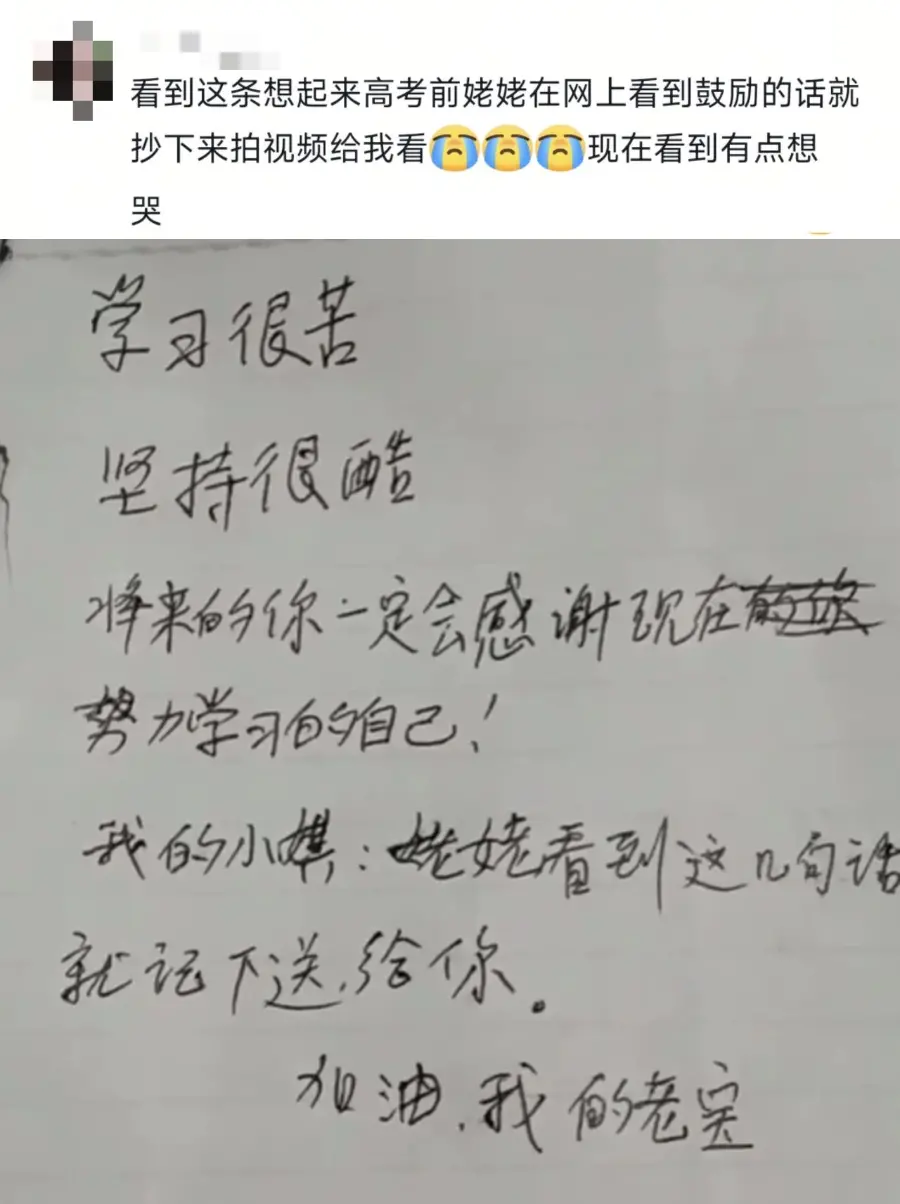 看到这条想起来高考前姥姥在网上看到鼓励的话就
抄下来拍视频给我看😭😭😭现在看到有点想
哭
学习很苦
坚持很酷
将来的你一定会感谢现在
努力学习的自己!
我的小:姥姥看到这几句话
就记下送,给你。
加油,我的老宝